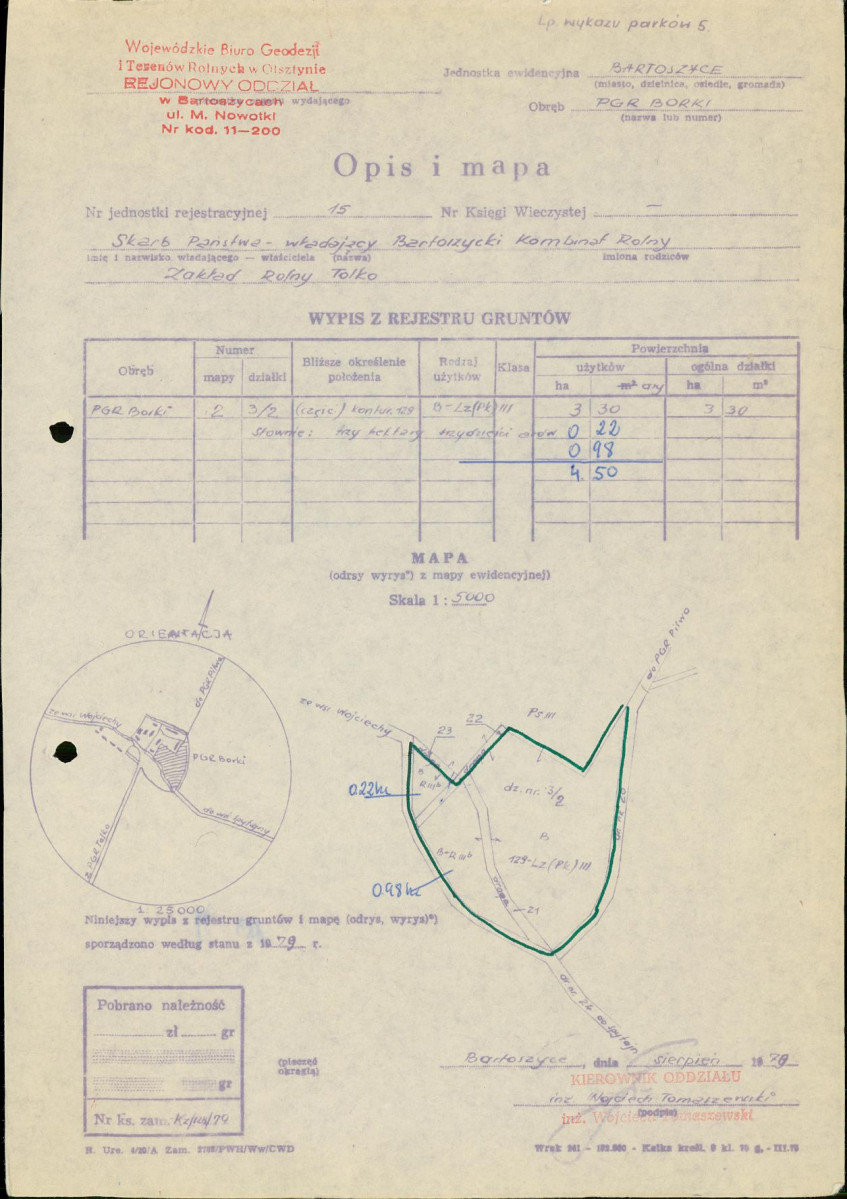 Lp. wykazu parków 5.
Wojewódzkie Biuro Geodezji
i Terenów Rolnych w Olsztynie
REJONOWY ODDZIAŁ
w Bartoszycach wydającego
ul. M. Nowotki
Nr kod. 11-200
Jednostka ewidencyjna BARTOSZYCE
(miasto, dzielnica, osiedle, gromada)
Obręb PGR BORKI
(nazwa lub numer)
Opis i mapa
Nr jednostki rejestracyjnej 15 Nr Księgi Wieczystej —
Skarb Państwa - władający Bartoszycki Kombinat Rolny
imię i nazwisko władającego — właściciela (nazwa) imiona rodziców
Zakład Rolny Tolko
WYPIS Z REJESTRU GRUNTÓW
Obręb Numer Bliższe określenie położenia Rodzaj użytków Klasa Powierzchnia
mapy działki użytków ogólna działki
ha m² ary ha m²
PGR Borki 2 3/2 (część) kontur. 129 B-Lz(Pk) III 3 30 3 30
słownie: trzy hektary trzydzieści arów 0 22
0 98
4. 50
MAPA
(odrys wyrys*) z mapy ewidencyjnej)
Skala 1 : 5000
ORIENTACJA
do PGR Piłwo
ze wsi Wojciechy
PGR Borki
z PGR Tolko
1:25000
do PGR Piłwo
ze wsi Wojciechy
23
22
Ps III
droga
B
R III b
0.22 ha
dz. nr. 3/2
B
129-Lz(Pk) III
B-R III b
0.98 ha
droga
21
dr nr 20
Niniejszy wypis z rejestru gruntów i mapę (odrys, wyrys)*)
sporządzono według stanu z 1979 r.
Pobrano należność
zł gr
gr
Nr ks. zam.
(pieczęć
okrągła)
Bartoszyce, dnia sierpień 1979
KIEROWNIK ODDZIAŁU
inż. Wojciech Tomaszewski
(podpis)
inż. Wojciech Tomaszewski